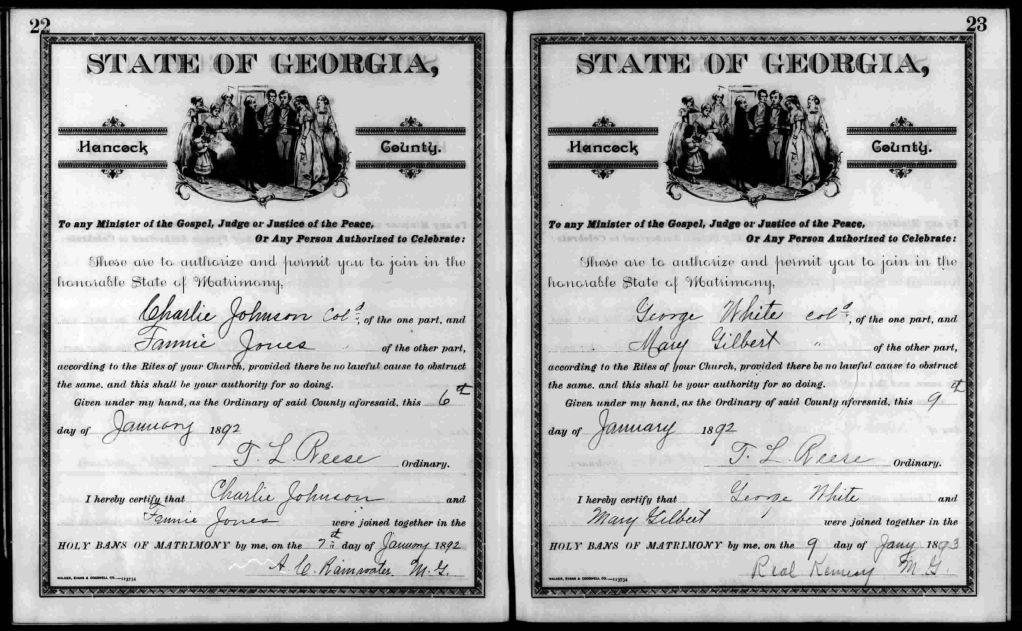 22
STATE OF GEORGIA,
Hancock County.
To any Minister of the Gospel, Judge or Justice of the Peace,
Or Any Person Authorized to Celebrate:
These are to authorize and permit you to join in the
honorable State of Matrimony,
Charlie Johnson Col^d, of the one part, and
Fannie Jones " of the other part,
according to the Rites of your Church, provided there be no lawful cause to obstruct
the same, and this shall be your authority for so doing.
Given under my hand, as the Ordinary of said County aforesaid, this 6th
day of January 1892
T. L. Reese Ordinary.
I hereby certify that Charlie Johnson and
Fannie Jones were joined together in the
HOLY BANS OF MATRIMONY by me, on the 7th day of January 1892
A. C. Rainwater M.G.
WALKER, EVANS & COGSWELL CO.—113734
23
STATE OF GEORGIA,
Hancock County.
To any Minister of the Gospel, Judge or Justice of the Peace,
Or Any Person Authorized to Celebrate:
These are to authorize and permit you to join in the
honorable State of Matrimony,
George White col^d, of the one part, and
Mary Gilbert " of the other part,
according to the Rites of your Church, provided there be no lawful cause to obstruct
the same, and this shall be your authority for so doing.
Given under my hand, as the Ordinary of said County aforesaid, this 9th
day of January 1892
T. L. Reese Ordinary.
I hereby certify that George White and
Mary Gilbert were joined together in the
HOLY BANS OF MATRIMONY by me, on the 9 day of Jany 1893
M G
WALKER, EVANS & COGSWELL CO.—113734